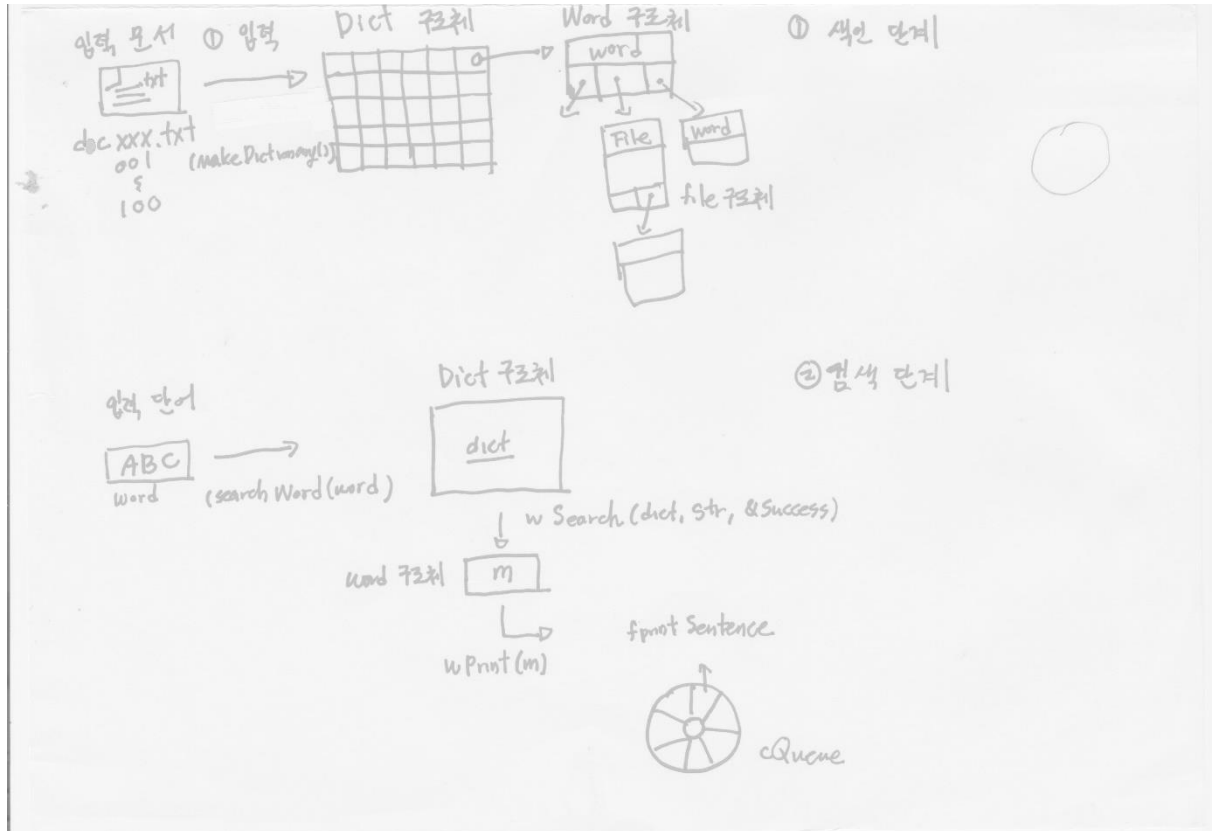 입력 문서
① 입력
Dict 구조체
Word 구조체
① 색인 단계
.txt
word
doc xxx.txt
001
100
(makeDictionary())
File
word
file 구조체
Dict 구조체
② 검색 단계
입력 단어
ABC
word
(searchWord(word)
dict
wSearch(dict, str, &Success)
word 구조체
m
wPrint(m)
fprintSentence
cQueue